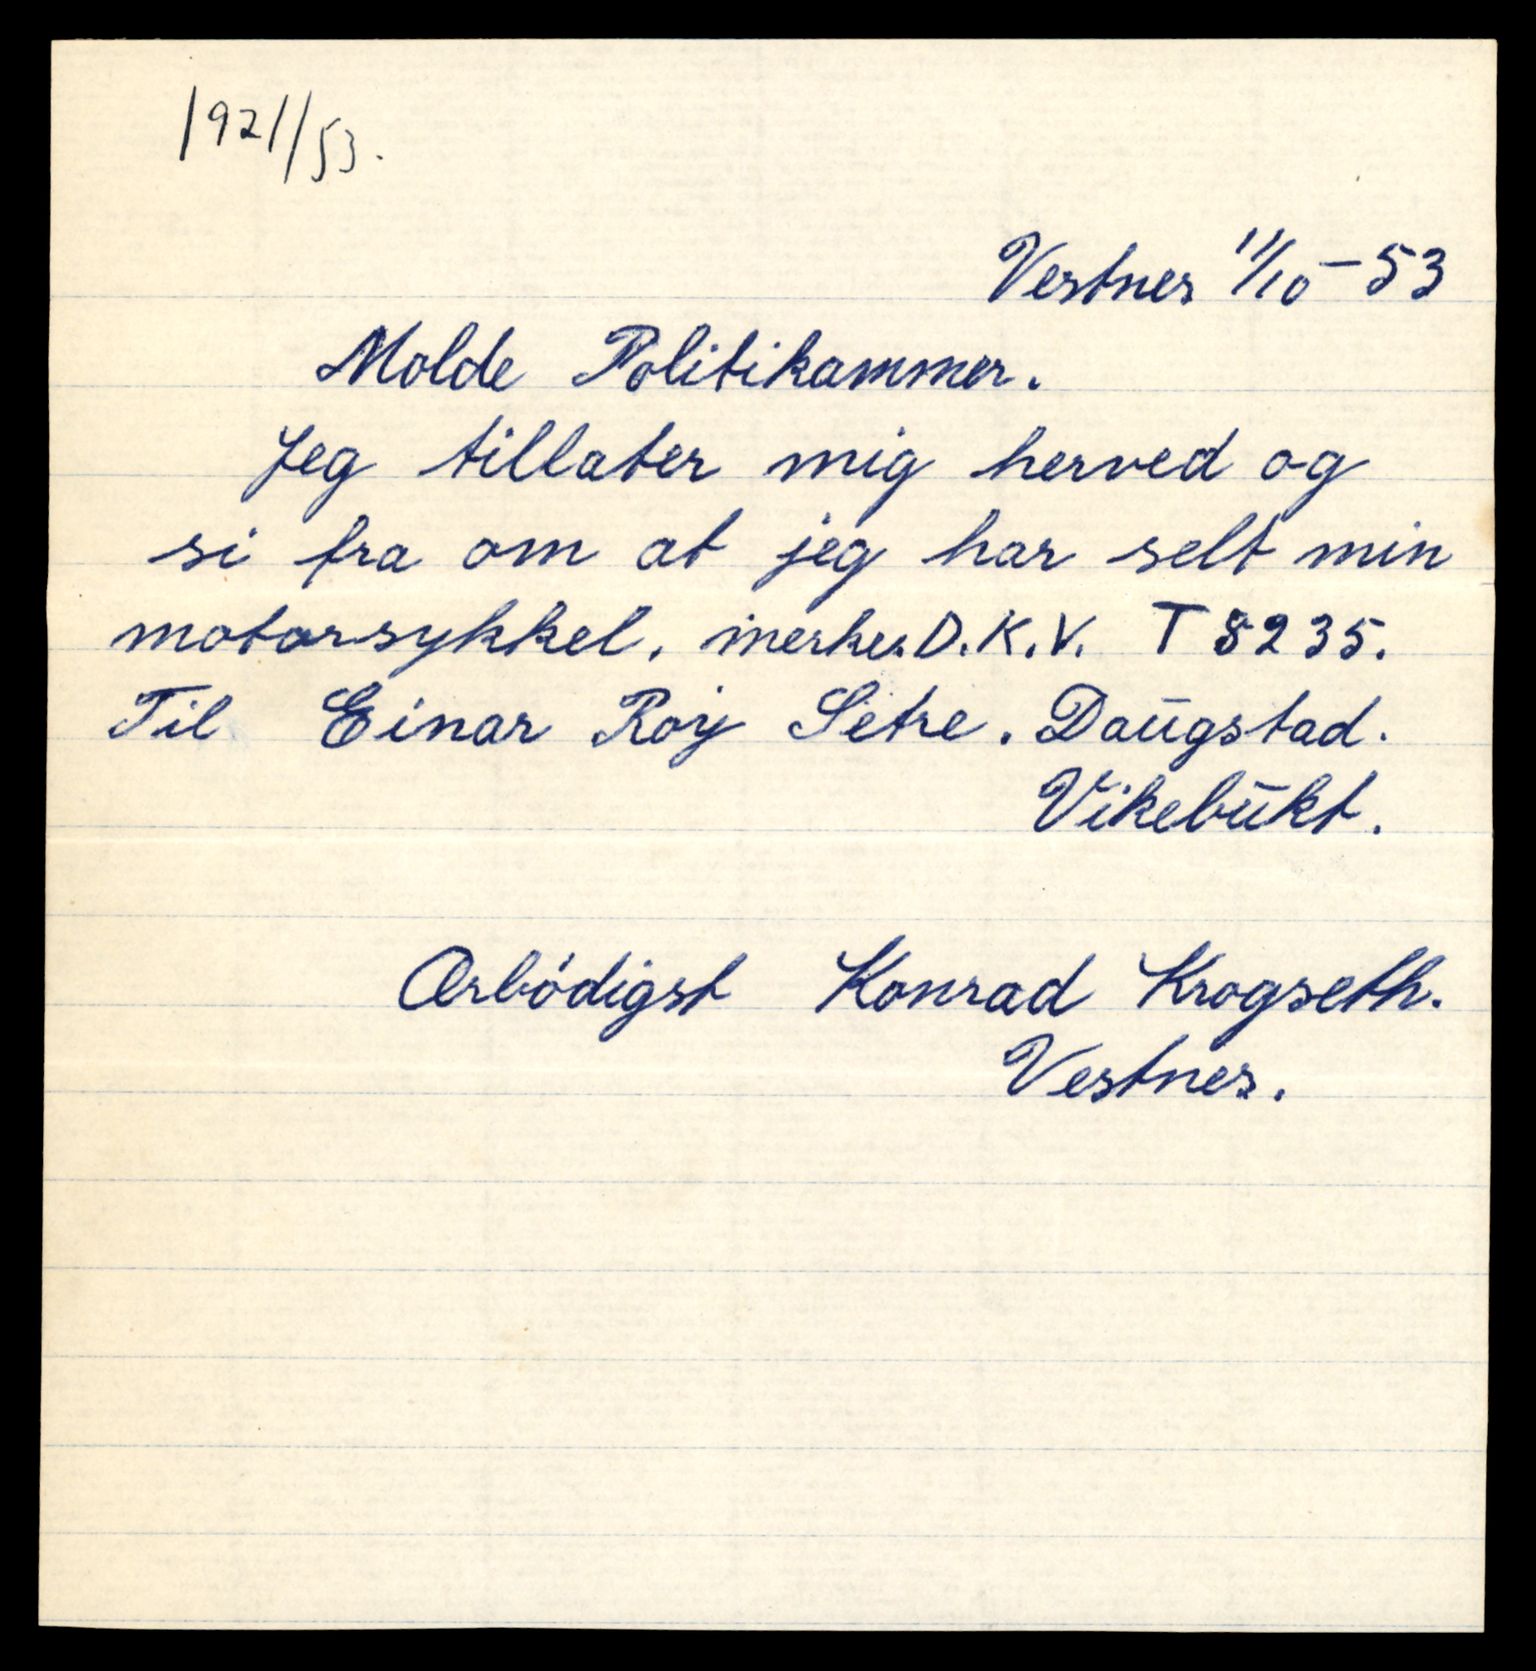 1921/53.
Vestnes 11/10-53
Molde Politikammer.
Jeg tillater mig herved og
si fra om at jeg har selt min
motorsykkel. merke. D.K.V. T 8235.
Til Einar Roy Setre. Daugstad.
Vikebukt.
Ærbödigst Konrad Krogseth.
Vestnes.